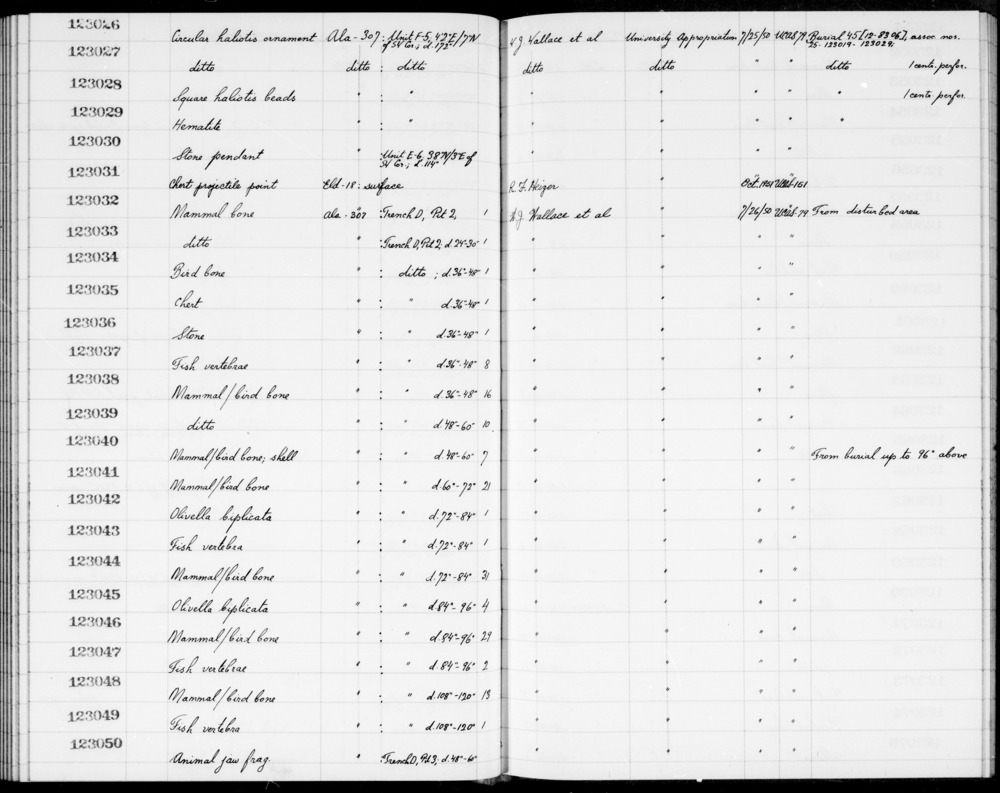 123026 Circular haliotis ornament Ala-307 : Unit F-5, 42"E/7"N of SW Cor.; d.172" W.J. Wallace et al University Appropriation 7/25/50 UCAS 79 Burial 45 [12-8306], assoc. nos. 123019-123029;
123027 ditto ditto : ditto ditto ditto " " ditto 1 cent. perfor.
123028 Square haliotis beads " : " " " " " 1 cent. perfor.
123029 Hematite " : " " " " " "
123030 Stone pendant " : Unit E-6, 38"N/3"E of SW Cor.; d.114" " " " "
123031 Chert projectile point Eld-18 : surface R.F. Heizer " Oct. 1951 UCAS-161
123032 Mammal bone Ala-307 : Trench D, Pit 2, 1 W.J. Wallace et al " 7/26/50 UCAS-79 From disturbed area
123033 ditto " : Trench D, Pit 2, d.24"-30" 1 " " " "
123034 Bird bone " : ditto ; d.36"-48" 1 " " " "
123035 Chert " : " d.36"-48" 1 " " " "
123036 Stone " : " d.36"-48" 1 " " " "
123037 Fish vertebrae " : " d.36"-48" 8 " " " "
123038 Mammal/bird bone " : " d.36"-48" 16 " " " "
123039 ditto " : " d.48"-60" 10 " " " "
123040 Mammal/bird bone; shell " : " d.48"-60" 7 " " " " From burial up to 96" above
123041 Mammal/bird bone " : " d.60"-72" 21 " " " "
123042 Olivella biplicata " : " d.72"-84" 1 " " " "
123043 Fish vertebra " : " d.72"-84" 1 " " " "
123044 Mammal/bird bone " : " d.72"-84" 31 " " " "
123045 Olivella biplicata " : " d.84"-96" 4 " " " "
123046 Mammal/bird bone " : " d.84"-96" 29 " " " "
123047 Fish vertebrae " : " d.84"-96" 2 " " " "
123048 Mammal/bird bone " : " d.108"-120" 13 " " " "
123049 Fish vertebra " : " d.108"-120" 1 " " " "
123050 Animal jaw frag. " : Trench D, Pit 3, d.48"-60" " " " "